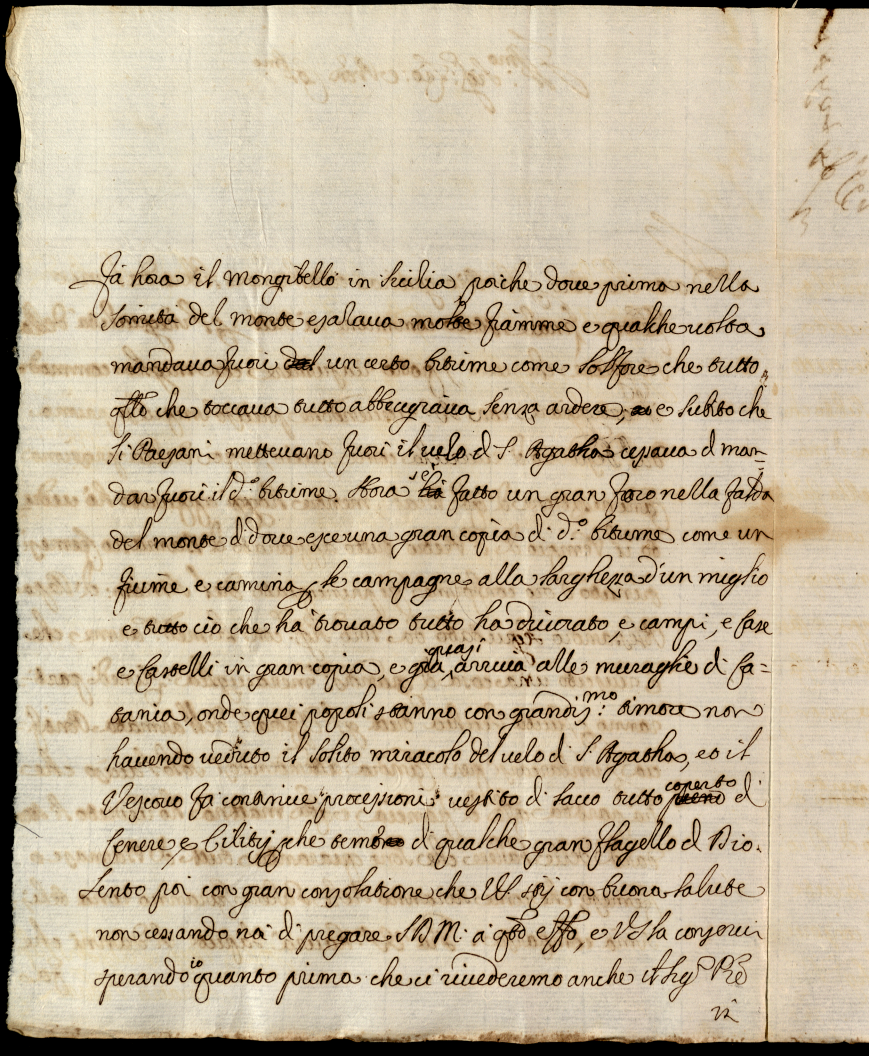 Fà hora il Mongibello in Sicilia, poiche doue prima nella
somità del monte esalaua molte fiamme e qualche uolta
mandaua fuori del un certo bitume come solfore che tutto
qllo che toccaua tutto abbrugiaua senza ardere, e subito che
li Paesani metteuano fuori il uelo di S. Agatha cessaua di man=
dar fuori il d.o bitume. Hora s'è hà fatto un gran foro nella falda
del monte di doue esce una gran copia di d.o bitume come un
fiume e camina le campagne alla larghezza d'un miglio
e tutto ciò che hà trouato tutto ha diuorato, e campi, e case
e Castelli in gran copia, e già quasi arriua alle muraglie di Ca=
tania, onde quei popoli stanno con grandiss.mo timore non
hauendo ueduto il solito miracolo del uelo di S. Agatha, et il
Vescouo fà continue processioni uestito di sacco tutto pieno coperto di
cenere e cilitij che teme di qualche gran flagello di Dio.
Sento poi con gran consolatione che VS stij con buona salute
non cessando noi di pregare S.D.M. à qto effto, e VS la conserui
sperando io quanto prima che ci riuederemo anche il Sig.r